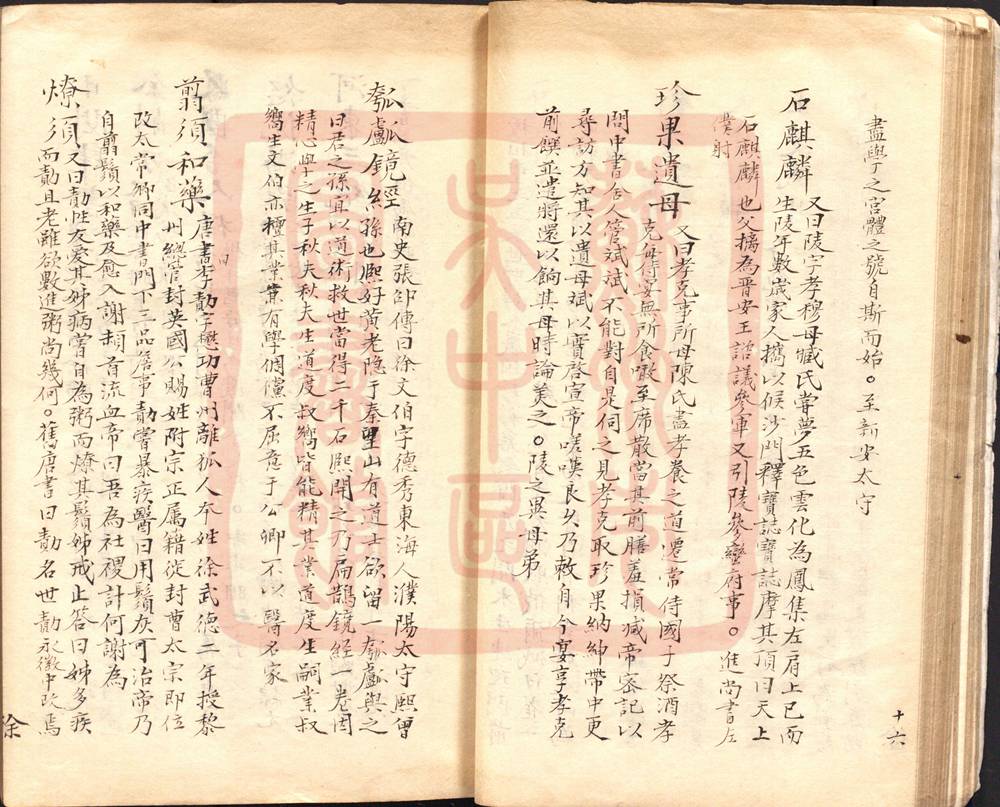 盡學之宮體之號自斯而始。至新安太守
石麒麟 又曰陵字孝穆母臧氏嘗夢五色雲化為鳳集左肩上已而
生陵年數歲家人攜以候沙門釋寶誌寶誌摩其頂曰天上
石麒麟也父摛為晋安王諮議參軍又引陵參寧府事。進尚書左
僕射
珍果遺母 又曰孝克事所母陳氏盡孝養之道遷常侍國子祭酒孝
克每侍宴無所食噉至席散當其前膳羞損减帝宻記以
問中書舍人管斌斌不能對自是伺之見孝克取珍果納紳帶中更
尋訪方知其以遺母斌以實啓宣帝嗟嘆良久乃敕自今宴享孝克
前饌並遣將還以餉其母時論美之。陵之異母弟
瓠𤬛鏡經 南史張邵傳曰徐文伯字德秀東海人濮陽太守熙曾
孫也熈好黃老隐于秦望山有道士欲留一瓠𤬛與之
曰君之孫宜以道術救世當得二千石熙開之乃扁鵲鏡經一卷因
精心學之生子秋夫秋夫生道度叔嚮皆能精其業道度生嗣業叔
嚮生文伯亦擅其業兼有學倜儻不屈意于公卿不以醫名家
翦須和藥 唐書李勣字懋功曹州離狐人本姓徐武德二年授黎
州總管封英國公賜姓附宗正属籍徙封曹太宗即位
改太常卿同中書門下三品詹事勣嘗暴疾醫曰用鬚灰可治帝乃
自翦鬚以和藥及愈入謝頓首流血帝曰吾為社稷計何謝為
燎須 又曰勣性友爱其姊病嘗自為粥而燎其鬚姊戒止答曰姊多疾
而勣且老雖欲數進粥尚幾何。舊唐書曰勣名世勣永徽中改焉
十六
徐